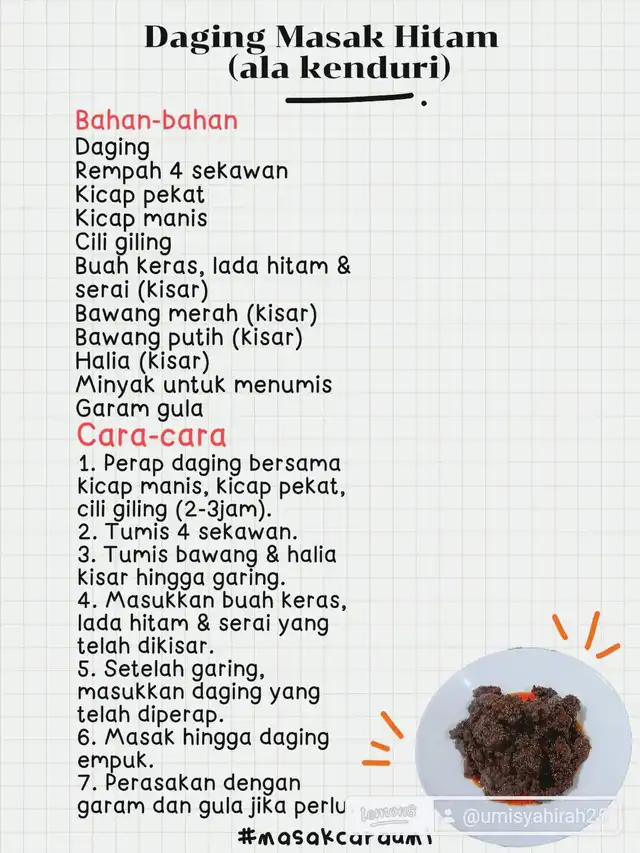 Daging Masak Hitam
(ala kenduri)
Bahan-bahan
Daging
Rempah 4 sekawan
Kicap pekat
Kicap manis
Cili giling
Buah keras, lada hitam &
serai (kisar)
Bawang merah (kisar)
Bawang putih (kisar)
Halia (kisar)
Minyak untuk menumis
Garam gula
Cara-cara
1. Perap daging bersama
kicap manis, kicap pekat,
cili giling (2-3jam).
2. Tumis 4 sekawan.
3. Tumis bawang & halia
kisar hingga garing.
4. Masukkan buah keras,
lada hitam & serai yang
telah dikisar.
5. Setelah garing,
masukkan daging yang
telah diperap.
6. Masak hingga daging
empuk.
7. Perasakan dengan
garam dan gula jika perlu
lemon8
#masakcaraumi